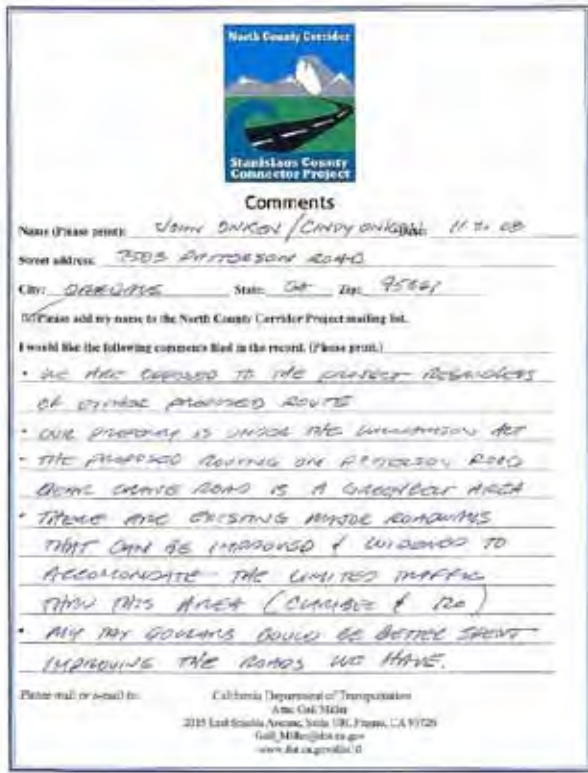 North County Corridor
Stanislaus County
Connector Project
Comments
Name (Please print): JOHN ONKEN / CINDY ONKEN Date: 08
Street address: PATTERSON ROAD
City: OAKDALE State: CA Zip: 95361
Please add my name to the North County Corridor Project mailing list.
I would like the following comments filed in the record. (Please print.)
• WE ARE OPPOSED TO THE PROJECT REGARDLESS
OF EITHER PROPOSED ROUTE
• OUR PROPERTY IS UNDER THE WILLIAMSON ACT
• THE PROPOSED ROUTING ON PATTERSON ROAD
NEAR CRANE ROAD IS A GREENBELT AREA
• THERE ARE EXISTING MAJOR ROADWAYS
THAT CAN BE IMPROVED & WIDENED TO
ACCOMONDATE THE LIMITED TRAFFIC
THRU THIS AREA (CLARIBEL & 120)
• MY TAX DOLLARS COULD BE BETTER SPENT
IMPROVING THE ROADS WE HAVE.
Please mail or e-mail to:
California Department of Transportation
Attn: Gail Miller
2015 East Shields Avenue, Suite 100, Fresno, CA 93726
Gail_Miller@dot.ca.gov